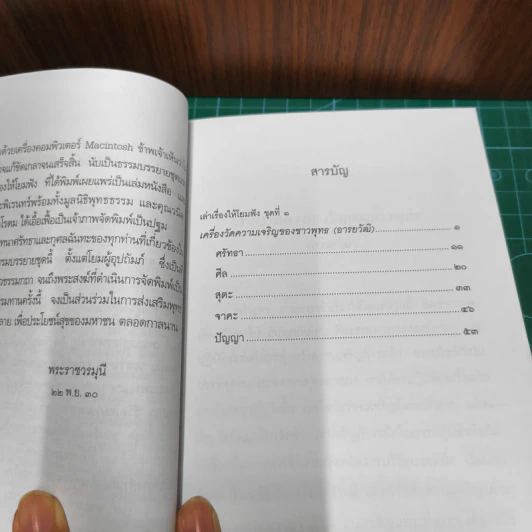 ด้วยเครื่องคอมพิวเตอร์ Macintosh ข้าพเจ้าเห็นว่า
แก้ขัดเกลาจนเสร็จสิ้น นับเป็นธรรมบรรยายชุด
ให้โยมฟัง ที่ได้พิมพ์เผยแพร่เป็นเล่มหนังสือ และ
พิเรนทร์พร้อมทั้งมูลนิธิพุทธธรรม และคุณ
โรดม ได้เอื้อเฟื้อเป็นเจ้าภาพจัดพิมพ์เป็นปฐม
ทนาศรัทธาและกุศลฉันทะของทุกท่านที่เกี่ยวข้อง
รมบรรยายชุดนี้ ตั้งแต่โยมผู้อุปถัมภ์ ซึ่งเป็น
วธรรมกถา จนถึงพระสงฆ์ที่ดำเนินการจัดพิมพ์เป็น
รมทานครั้งนี้ จงเป็นส่วนร่วมในการส่งเสริมพุทธ
ลาย เพื่อประโยชน์สุขของมหาชน ตลอดกาลนาน
พระราชวรมุนี
๒๒ พ.ย. ๓๐
สารบัญ
เล่าเรื่องให้โยมฟัง ชุดที่ ๑
เครื่องวัดความเจริญของชาวพุทธ (อารยวัฒิ) ๑
ศรัทธา ๑๑
ศีล ๒๐
สุตะ ๓๓
จาคะ ๔๖
ปัญญา ๕๓